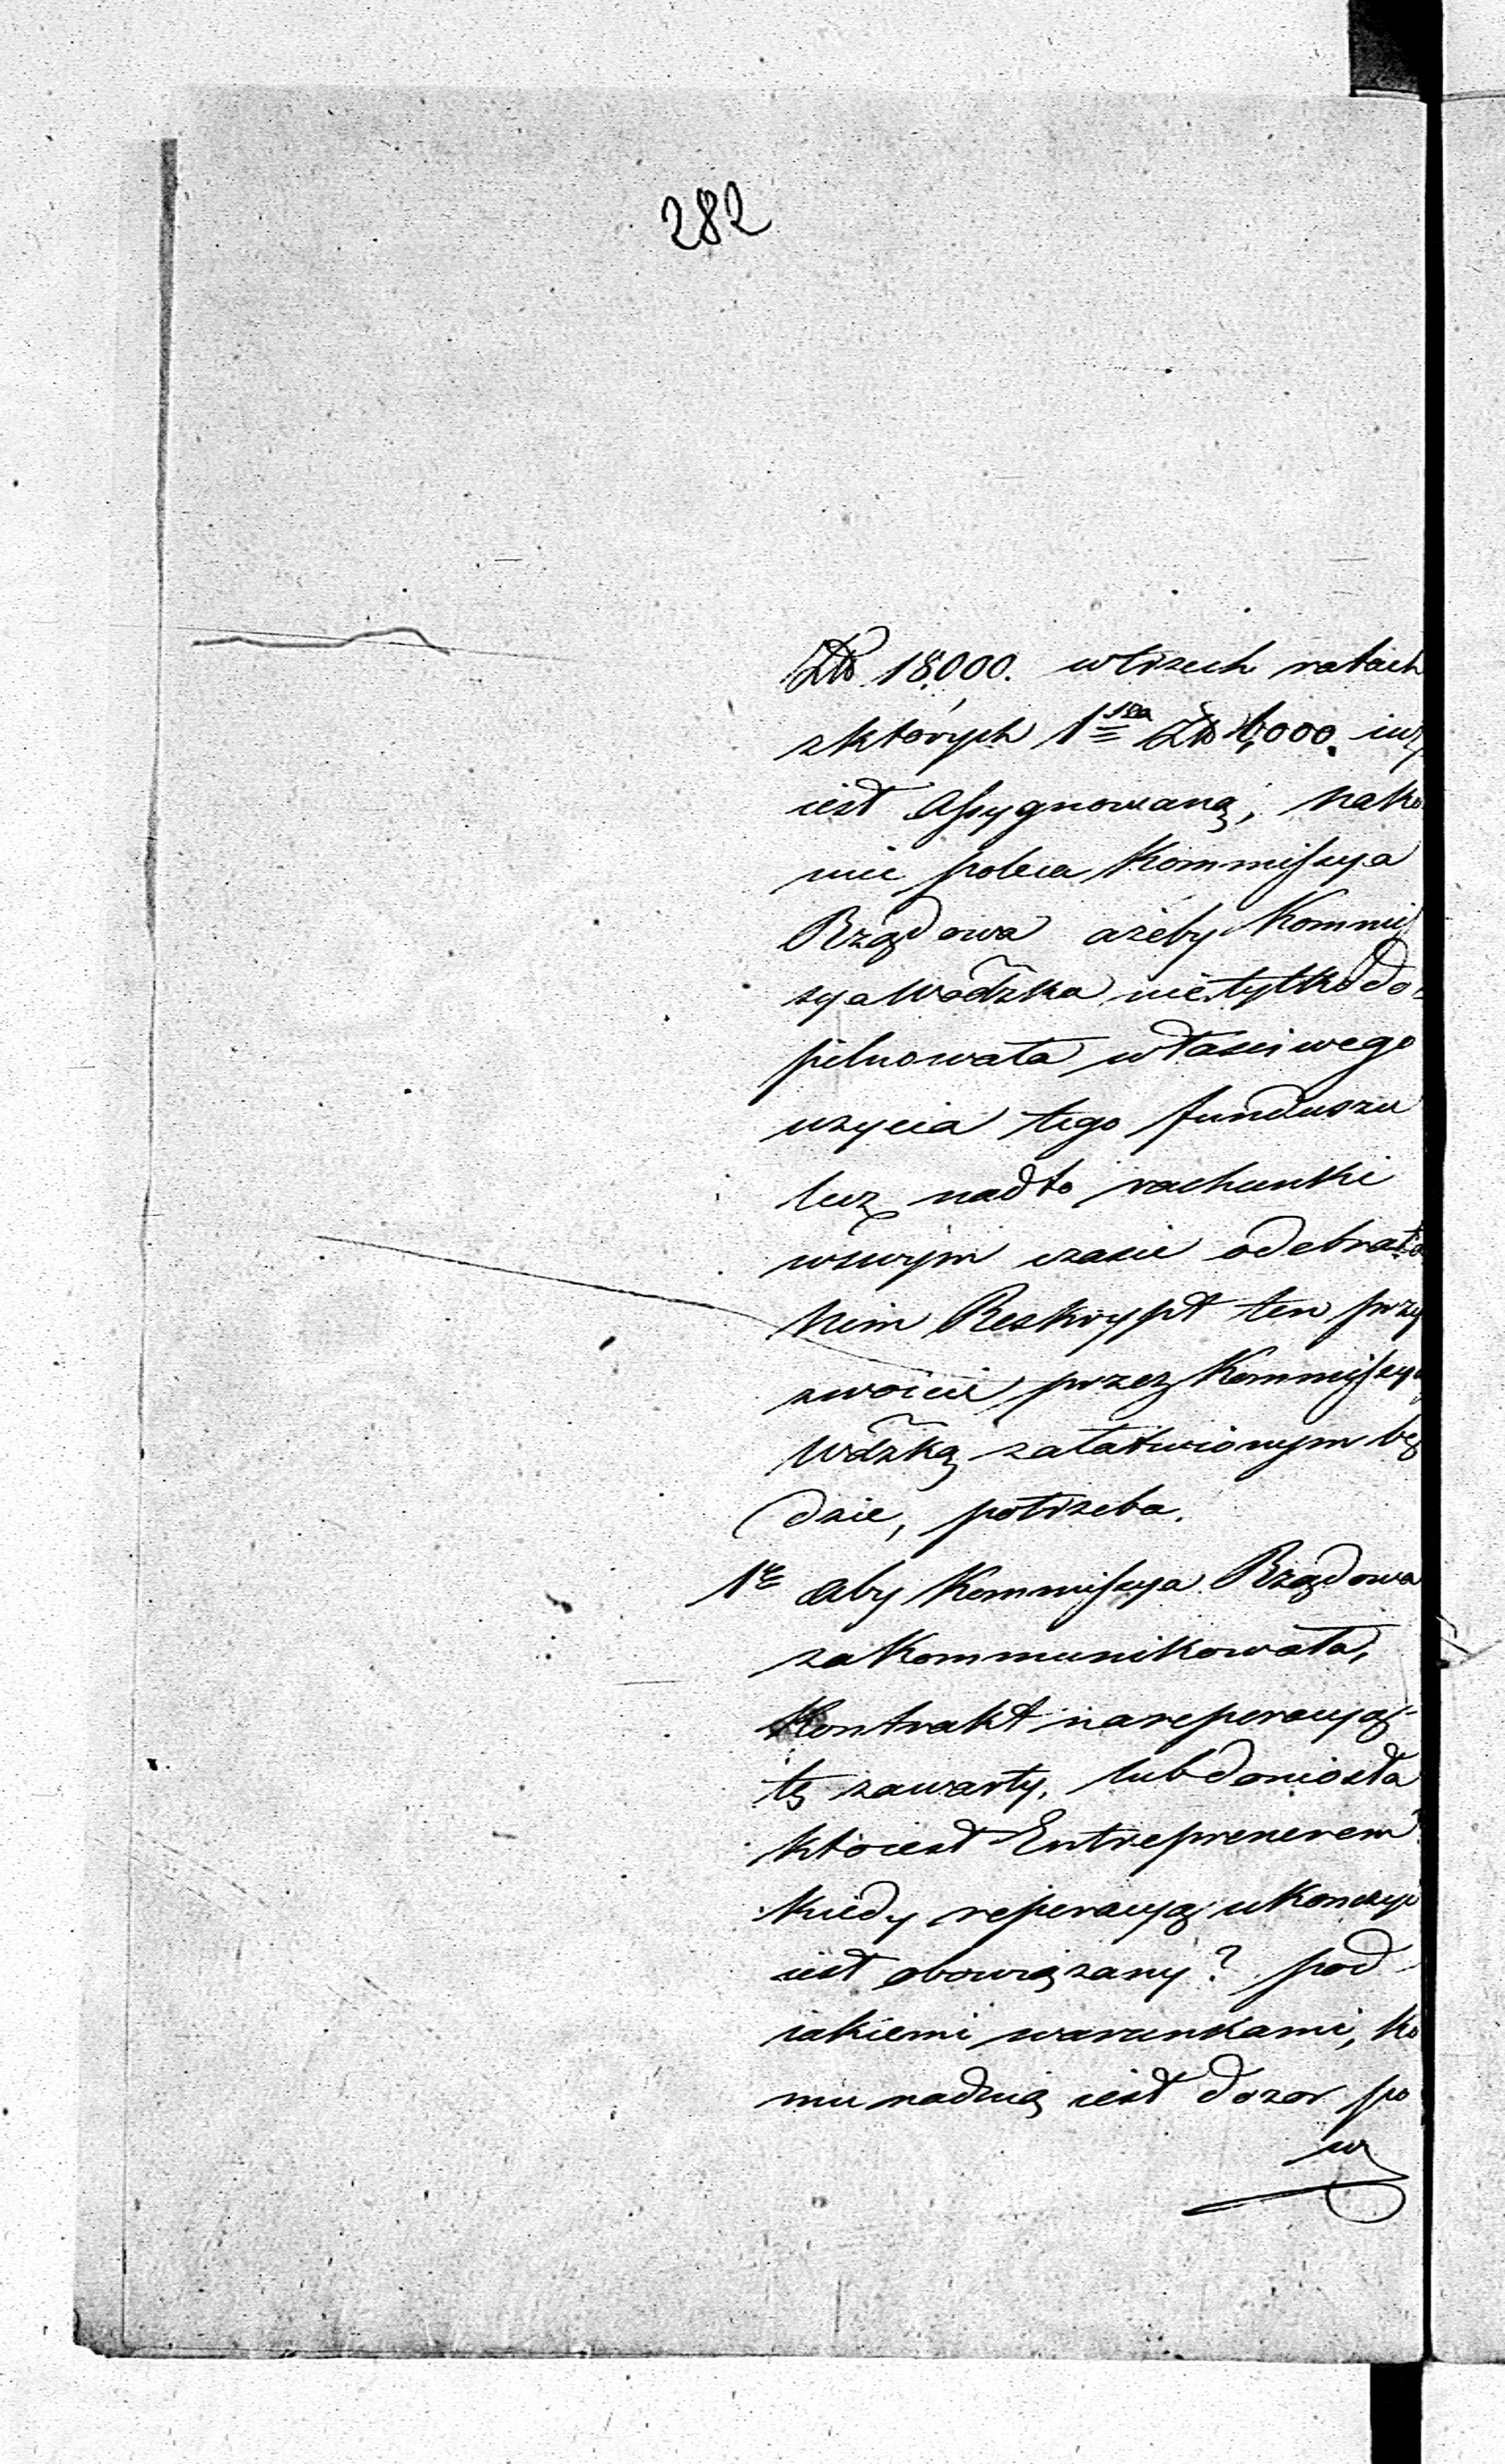 282
Złp 18,000. w trzech ratach
z których 1sza Złp 6,000. iuż
iest Assygnowaną, nako
nie poleca Kommissya
Rządowa ażeby Kommis
sya Wdzka nie tylko do
pilnowała właściwego
użycia tego funduszu
lecz nadto rachunki
w swym czasie odebrała
Nim Reskrypt ten przy
zwoicie przez Kommissyą
Wdzką załatwionym bę
dzie, potrzeba.
1e Aby Kommissya Rządowa
zakommunikowała,
Kontrakt na reperacyą
tę zawarty, lub doniosła
kto iest Entreprenerem
kiedy reperacyą ukonczyć
iest obowiązany? pod
iakiemi warunkami, ko
mu nad nią iest dozor po